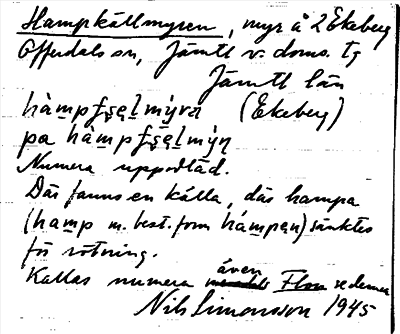 Hampkällmyren, myr å 2 Ekeberg
Offerdals sn, Jämtl v. doms. tg
Jämtl län
hàm̱pfşęḻmýra (Ekeberg)
pa hàm̱pfşęḻmýṉ
Numera uppodlad.
Där fanns en källa, där hampa
(ham̱p m. best. form hámpęn) sänktes
för rötning.
Kallas numera även Flon se denna
Nils Simonsson 1945